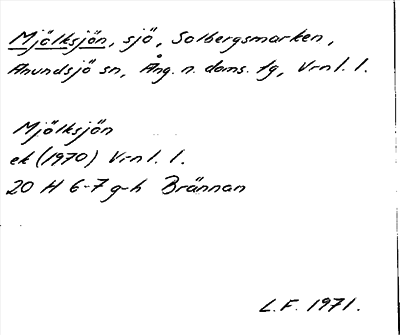 Mjölksjön, sjö, Solbergsmarken,
Anundsjö sn, Ång. n. doms. tg, Vrnl. l.
Mjölksjön
ek (1970) Vrnl. l.
20 H 6-7 g-h Brännan
L.F. 1971.